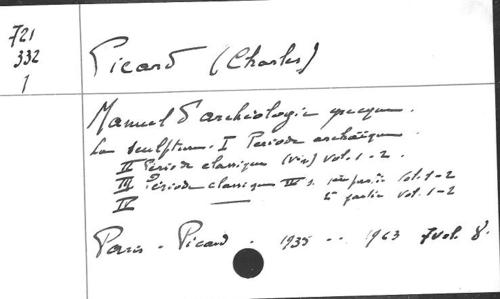 721
332
1
Picard (Charles)
Manuel d'archéologie grecque.
La sculpture. I Période archaïque
II Période classique (Ve s) Vol. 1-2.
III Période classique IVe s. 1ère partie Vol. 1-2
IV — 2e partie Vol. 1-2
Paris - Picard. 1935 -- 1963 7 vol. 8°.